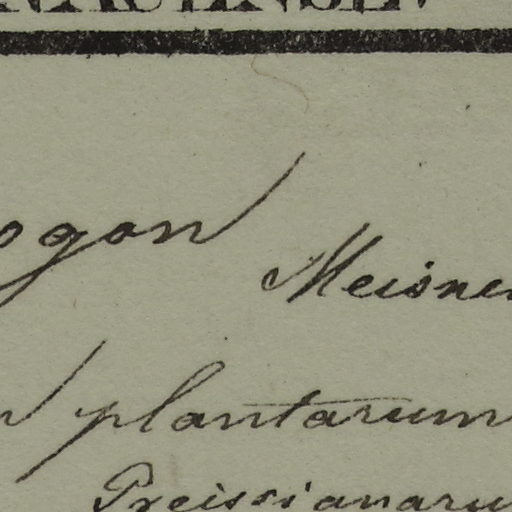 ogon
Meisner
plantarum
Preissianaru